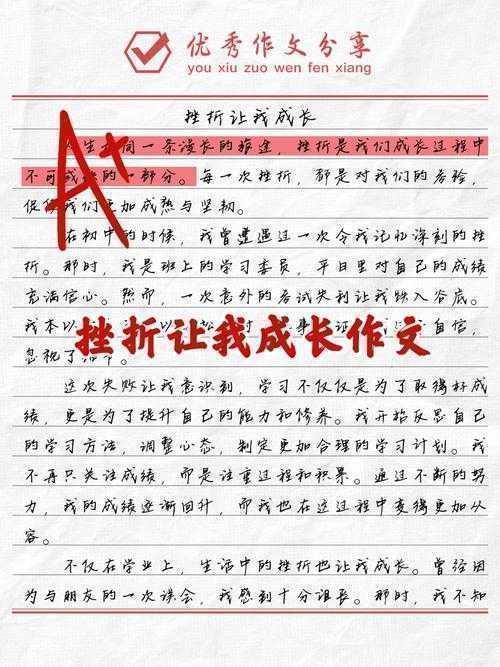 优秀作文分享
you xiu zuo wen fen xiang
挫折让我成长
生 同一条漫长的旅途，挫折是我们成长过程中
不可 的一部分。每一次挫折，都是对我们的考验，
促 我们更加成熟与坚韧。
在初中的时候，我曾遭遇过一次令我记忆深刻的挫
折。那时，我是班上的学习委员，平日里对自己的成绩
充满信心。然而，一次意外的考试失利让我跌入谷底。
我本以 自信，
忽视了
挫折让我成长作文
这次失败让我意识到，学习不仅仅是为了取得好成
绩，更是为了提升自己的能力和修养。我开始反思自己
的学习方法，调整心态，制定更加合理的学习计划。我
不再只关注成绩，而是注重过程和积累。通过不断的努
力，我的成绩逐渐回升，而我也在这过程中变得更加从
容。
不仅在学业上，生活中的挫折也让我成长。曾经因
为与朋友的一次误会，我感到十分沮丧。那时，我不知
A+